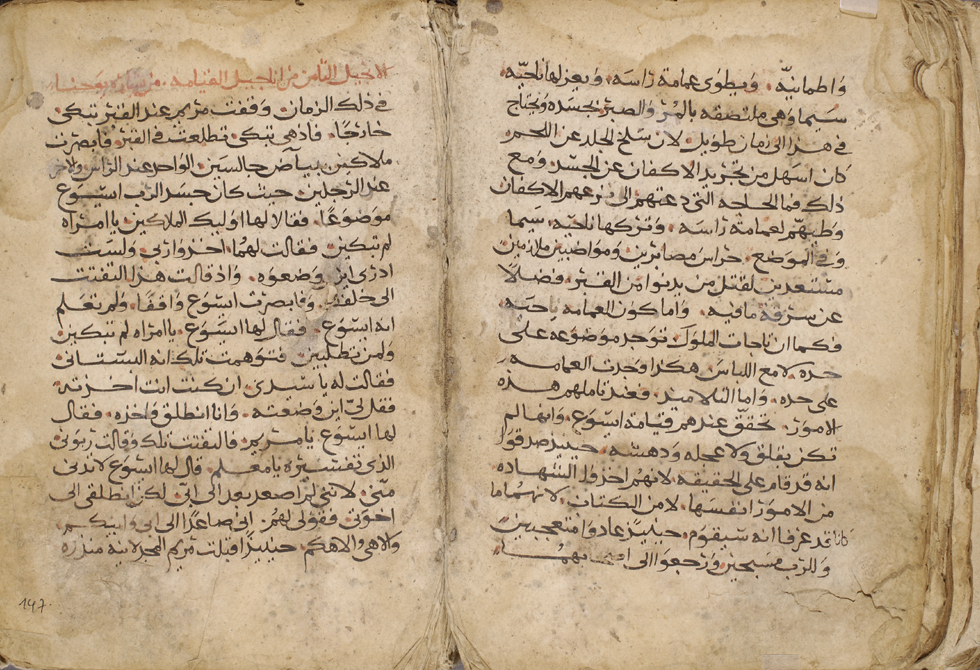 واطمانيّه. ويطوى عمامة راسه. ويعزلها ناحيّه
سيما وهي ملتصقه بالمرّ والصبر بجسده ويحتاج
في هذا الى زمان طويل. لان سلخ الجلد عن اللحم
كان اسهل من تجريد الاكفان عن الجسد. ومع
ذلك فما الحاجه التي دعتهم الى نزعهم الاكفان
وطيهم لعمامة راسه. وتركها ناحيّه. سيما
وفي الموضع. حراس مصابرين ومواضبين ملازمين
مستعدين لقتل من يدنوا من القبر. فضلاً
عن سرقة مافيه. واما كون العمامه ناحيه
فكما ان تاجات الملوك توجد موضوعه على
حده لا مع اللباس. هكذا وجدت العمامه
على حده. واما التلاميذ. فعند تاملهم هذه
الامور. تحقق عندهم قيامة ايسوع. وانها لم
تكن بقلق ولا عجله ودهشه. حينيذ صدقوا
انه قد قام على الحقيقه. لانهم اخذوا الشهاده
من الامور انفسها. لا من الكتاب. لانهما ما
كانا قد عرفا انه سيقوم. حينيذ عادوا متعجبين
وللرب مسبحين ورجعوا الى
الانجيل الثامن من اناجيل القيامة. من بشارة يوحنا
في ذلك الزمان. وقفت مريم عند القبر تبكي
خارجًا. فاذ هي تبكي تطلعت في القبر. فابصرت
ملاكين. ببياض جالسين. الواحد عند الراس والاخر
عند الرجلين. حيث كان جسد الرب ايسوع
موضوعًا. فقالا لها اوليك الملاكين. يا امراه
لم تبكين. فقالت لهما. اخذوا ربي ولست
ادري اين وضعوه. واذ قالت هذا التفتت
الى خلفها. فابصرت ايسوع واقفًا. ولم تعلم
انه ايسوع. فقال لها ايسوع. يا امراه لم تبكين
ولمن تطلبين. فتوهمت تلك انه البستاني
فقالت له يا سيدي. ان كنت انت اخذته
فقل لي اين وضعته. وانا انطلق واخذه. فقال
لها ايسوع. يا مريم. فالتفتت تلك وقالت ربوني
الذي تفسيره يا معلم. قال لها ايسوع لا تدني
منّي. لانني لم اصعد بعد الى ابي. لكن انطلقي الى
اخوتي. فقولي لهم. اني صاعدًا الى ابي وابيكم
والاهي والاهكم. حينيذًا اقبلت مريم المجدلانيه منذره
197